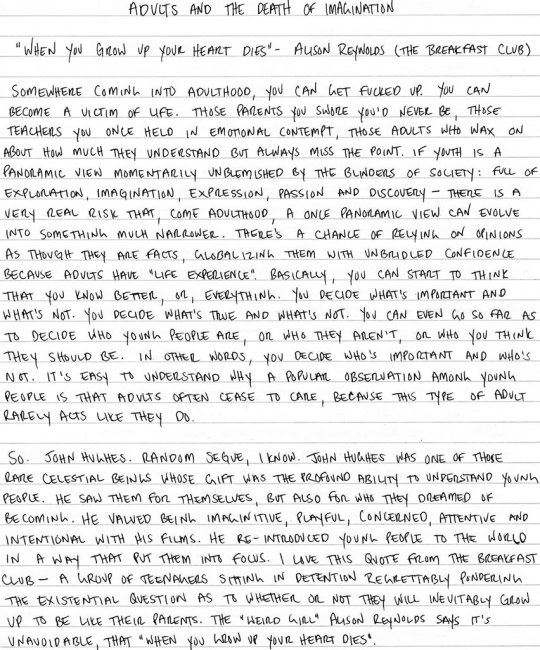 ADULTS AND THE DEATH OF IMAGINATION
"WHEN YOU GROW UP YOUR HEART DIES" - ALISON REYNOLDS (THE BREAKFAST CLUB)
SOMEWHERE COMING INTO ADULTHOOD, YOU CAN GET FUCKED UP. YOU CAN
BECOME A VICTIM OF LIFE. THOSE PARENTS YOU SWORE YOU'D NEVER BE, THOSE
TEACHERS YOU ONCE HELD IN EMOTIONAL CONTEMPT, THOSE ADULTS WHO WAX ON
ABOUT HOW MUCH THEY UNDERSTAND BUT ALWAYS MISS THE POINT. IF YOUTH IS A
PANORAMIC VIEW MOMENTARILY UNBLEMISHED BY THE BLINDERS OF SOCIETY: FULL OF
EXPLORATION, IMAGINATION, EXPRESSION, PASSION AND DISCOVERY - THERE IS A
VERY REAL RISK THAT, COME ADULTHOOD, A ONCE PANORAMIC VIEW CAN EVOLVE
INTO SOMETHING MUCH NARROWER. THERE'S A CHANCE OF RELYING ON OPINIONS
AS THOUGH THEY ARE FACTS, GLOBALIZING THEM WITH UNBRIDLED CONFIDENCE
BECAUSE ADULTS HAVE "LIFE EXPERIENCE". BASICALLY, YOU CAN START TO THINK
THAT YOU KNOW BETTER, OR, EVERYTHING. YOU DECIDE WHAT'S IMPORTANT AND
WHAT'S NOT. YOU DECIDE WHAT'S TRUE AND WHAT'S NOT. YOU CAN EVEN GO SO FAR AS
TO DECIDE WHO YOUNG PEOPLE ARE, OR WHO THEY AREN'T, OR WHO YOU THINK
THEY SHOULD BE. IN OTHER WORDS, YOU DECIDE WHO'S IMPORTANT AND WHO'S
NOT. IT'S EASY TO UNDERSTAND WHY A POPULAR OBSERVATION AMONG YOUNG
PEOPLE IS THAT ADULTS OFTEN CEASE TO CARE, BECAUSE THIS TYPE OF ADULT
RARELY ACTS LIKE THEY DO.
SO. JOHN HUGHES. RANDOM SEGUE, I KNOW. JOHN HUGHES WAS ONE OF THOSE
RARE CELESTIAL BEINGS WHOSE GIFT WAS THE PROFOUND ABILITY TO UNDERSTAND YOUNG
PEOPLE. HE SAW THEM FOR THEMSELVES, BUT ALSO FOR WHO THEY DREAMED OF
BECOMING. HE VALUED BEING IMAGINITIVE, PLAYFUL, CONCERNED, ATTENTIVE AND
INTENTIONAL WITH HIS FILMS. HE RE-INTRODUCED YOUNG PEOPLE TO THE WORLD
IN A WAY THAT PUT THEM INTO FOCUS. I LOVE THIS QUOTE FROM THE BREAKFAST
CLUB - A GROUP OF TEENAGERS SITTING IN DETENTION REGRETTABLY PONDERING
THE EXISTENTIAL QUESTION AS TO WHETHER OR NOT THEY WILL INEVITABLY GROW
UP TO BE LIKE THEIR PARENTS. THE "WEIRD GIRL" ALISON REYNOLDS SAYS IT'S
UNAVOIDABLE, THAT "WHEN YOU GROW UP YOUR HEART DIES".